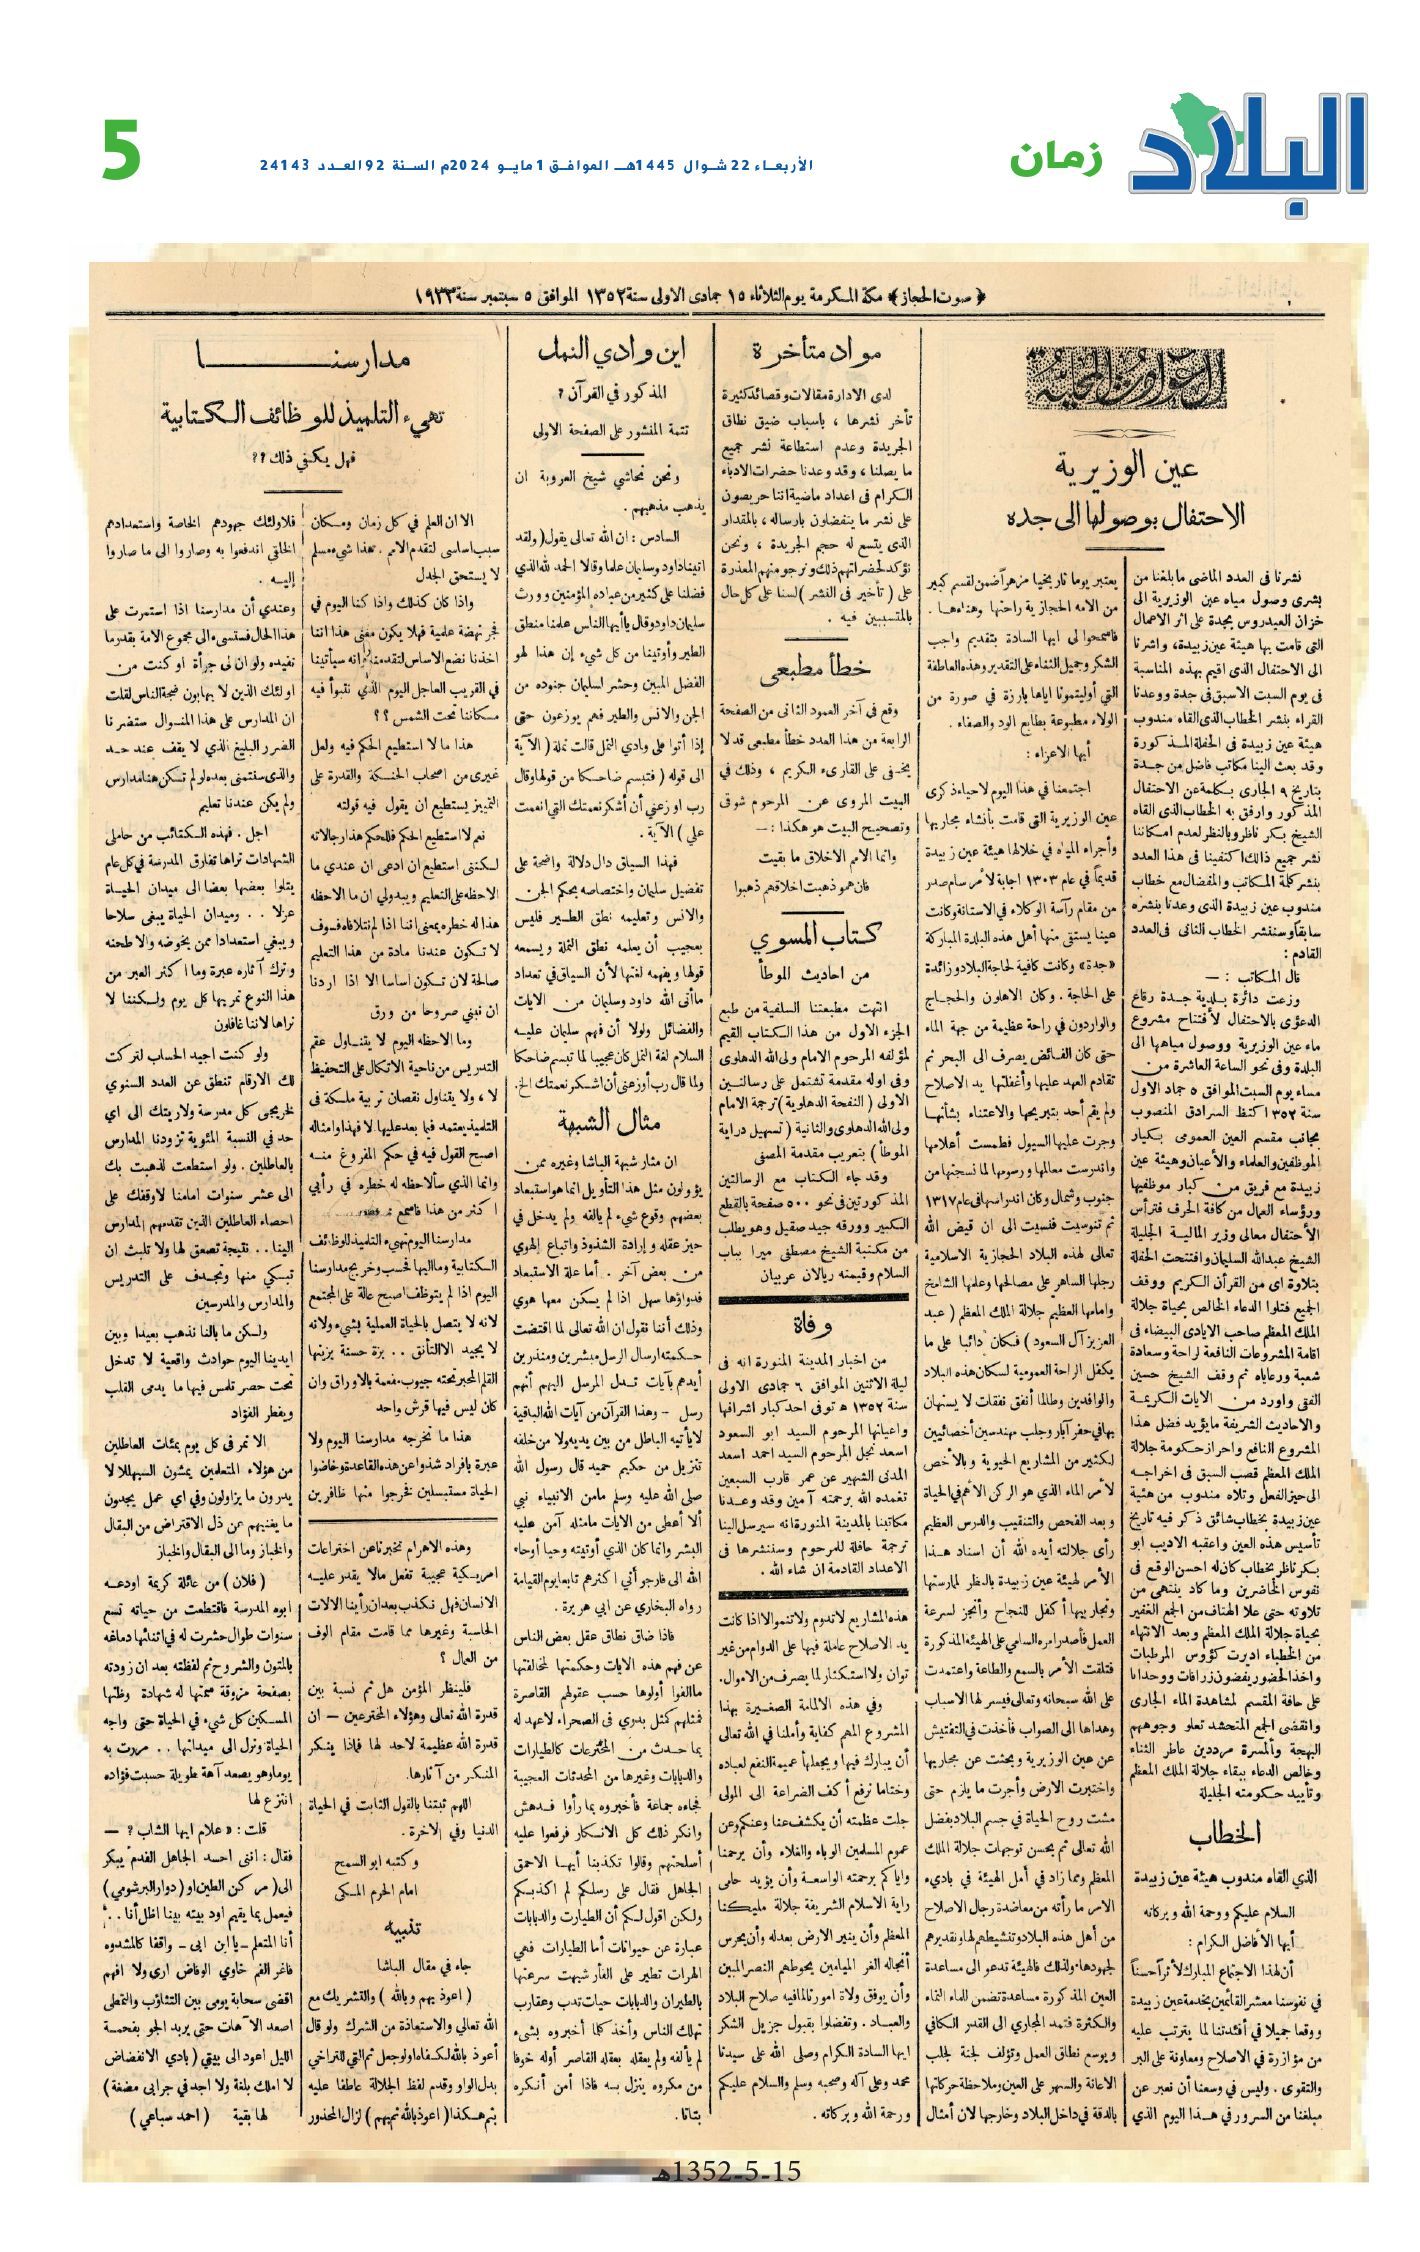 البلاد
زمان
الأربعاء 22 شوال 1445هـ الموافق 1 مايو 2024م السنة 92 العدد 24143
5
﴿ صوت الحجاز ﴾ مكة المكرمة يوم الثلاثاء ١٥ جمادى الاولى سنة ١٣٥٢ الموافق ٥ سبتمبر سنة ١٩٣٣
عين الوزيرية
الاحتفال بوصولها الى جده
نشرنا فى العدد الماضى ما بلغنا من
بشرى وصول مياه عين الوزيرية الى
خزان العيدروس بجدة على اثر الاعمال
التى قامت بها هيئة عين زبيدة، واشرنا
الى الاحتفال الذى اقيم بهذه المناسبة
فى يوم السبت الاسبق فى جدة ووعدنا
القراء بنشر الخطاب الذى القاه مندوب
هيئة عين زبيدة فى الحفلة المذكورة
وقد بعث الينا مكاتب فاضل من جدة
بتاريخ ٩ الجارى بكلمة عن الاحتفال
المذكور وارفق به الخطاب الذى القاه
الشيخ بكر ناظر وبالنظر لعدم امكاننا
نشر جميع ذلك اكتفينا فى هذا العدد
بنشر كلمة المكاتب والمفضال مع خطاب
مندوب عين زبيدة الذى وعدنا بنشره
سابقا وسننشر الخطاب الثانى فى العدد
القادم :
قال المكاتب : —
وزعت دائرة بلدية جدة رقاع
الدعوى بالاحتفال لأفتتاح مشروع
ماء عين الوزيرية ووصول مياهها الى
البلدة وفى نحو الساعة العاشرة من
مساء يوم السبت الموافق ٥ جماد الاول
سنة ١٣٥٢ اكتظ السرادق المنصوب
بجانب مقسم العين العمومى بكبار
الموظفين والعلماء والأعيان وهيئة عين
زبيدة مع فريق من كبار موظفيها
ورؤساء العمال من كافة الحرف فترأس
الأحتفال معالى وزير المالية الجليلة
الشيخ عبدالله السليمان وافتتحت الحفلة
بتلاوة اى من القرآن الكريم ووقف
الجميع فتلوا الدعاء الخالص بحياة جلالة
الملك المعظم صاحب الايادى البيضاء فى
اقامة المشروعات النافعة لراحة وسعادة
شعبة ورعاياه ثم وقف الشيخ حسين
الفتى واورد من الايات الكريمة
والاحاديث الشريفة ما يؤيد فضل هذا
المشروع النافع واحراز حكومة جلالة
الملك المعظم قصب السبق فى اخراجه
الى حيز الفعل وتلاه مندوب من هئية
عين زبيدة بخطاب شائق ذكر فيه تاريخ
تأسيس هذه العين واعقبه الاديب ابو
بكر ناظر بخطاب كان له احسن الوقع فى
نفوس الحاضرين وما كاد ينتهى من
تلاوته حتى علا الهتاف من الجمع الغفير
بحياة جلالة الملك المعظم وبعد الانتهاء
من الخطباء اديرت كؤوس المرطبات
واخذ الحضور يفضون زرافات ووحدانا
على حافة المقسم لمشاهدة الماء الجارى
وانفضى الجمع المتحشد تعلو وجوههم
البهجة والمسرة مرددين عاطر الثناء
وخالص الدعاء ببقاء جلالة الملك المعظم
وتأييد حكومته الجليلة
الخطاب
الذي القاه مندوب هيئة عين زبيدة
السلام عليكم ورحمة الله وبركاته
أيها الأفاضل الكرام :
أن لهذا الاجتماع المبارك لأثراً حسناً
في نفوسنا معشر القائمين بخدمة عين زبيدة
ووقعا جميلا في أفئدتنا لما يترتب عليه
من مؤازرة في الاصلاح ومعاونة على البر
والتقوى . وليس في وسعنا أن نعبر عن
مبلغنا من السرور في هذا اليوم الذي
يعتبر يوما تاريخيا مزهراً ضمن لقسم كبير
من الامه الحجازية راحتها وهناءها .
فاسمحوا لى ايها السادة بتقديم واجب
الشكر وجميل الثناء على التقدير وهذه العاطفة
التي أوليتمونا اياها بارزة في صورة من
الولاء مطبوعة بطابع الود والصفاء .
أيها الاعزاء :
اجتمعنا في هذا اليوم لاحياء ذكرى
عين الوزيرية التى قامت بأنشاء مجاريها
وأجراء المياه في خلالها هيئة عين زبيدة
قديماً في عام ١٣٠٣ اجابة لأمر سام صدر
من مقام رآسة الوكلاء في الاستانة وكانت
عينا يستقى منها أهل هذه البلدة المباركة
«جدة» وكانت كافية لحاجة البلاد وزائدة
على الحاجة . وكان الاهلون والحجاج
والواردون في راحة عظيمة من جهة الماء
حتى كان الفائض يصرف الى البحر ثم
تقادم العهد عليها وأغفلتها يد الاصلاح
ولم يقم أحد بتبريحها والاعتناء بشأنها
وجرت عليها السيول فطمست أعلامها
واندرست معالمها ورسومها لما نسجتها من
جنوب وشمال وكان اندراسها فى عام ١٣١٧
ثم تنوسيت فنسيت الى ان قيض الله
تعالى لهذه البلاد الحجازية الاسلامية
رجلها الساهر على مصالحها وعلمها الشامخ
وامامها العظيم جلالة الملك المعظم ( عبد
العزيز آل السعود ) فكان دائبا على ما
يكفل الراحة العمومية لسكان هذه البلاد
والوافدين وطالما أنفق نفقات لا يستهان
بها في حفر آبار وجلب مهندسين أخصائيين
لكثير من المشاريع الحيوية وبالأخص
لأمر الماء الذي هو الركن الأهم في الحياة
وبعد الفحص والتنقيب والدرس العظيم
رأى جلالته أيده الله أن اسناد هذا
الأمر لهيئة عين زبيدة بالنظر لممارستها
وتجاريبها أكفل للنجاح وأنجز لسرعة
العمل فأصدر امره السامي على الهيئة المذكورة
فتلقت الأمر بالسمع والطاعة واعتمدت
على الله سبحانه وتعالى فيسر لها الأسباب
وهداها الى الصواب فأخذت في التفتيش
عن عين الوزيرية وبحثت عن مجاريها
واختبرت الارض وأجرت ما يلزم حتى
مشت روح الحياة في جسم البلاد بفضل
الله تعالى ثم بحسن توجهات جلالة الملك
المعظم ومما زاد في أمل الهيئة في بادىء
الامر ما رأته من معاضدة رجال الاصلاح
من أهل هذه البلاد وتنشيطهم لها وتقديرهم
لجهودها. ولذلك فالهيئة تدعو الى مساعدة
العين المذكورة مساعدة تضمن للماء النماء
والكثرة فتمد المجاري الى القدر الكافي
ويوسع نطاق العمل وتؤلف لجنة لجلب
الاعانة والسهر على العين وملاحظة حركاتها
بالدقة في داخل البلاد وخارجها لان أمثال
مواد متأخرة
لدى الادارة مقالات وقصائد كثيرة
تأخر نشرها ، باسباب ضيق نطاق
الجريدة وعدم استطاعة نشر جميع
ما يصلنا ، وقد وعدنا حضرات الادباء
الكرام فى اعداد ماضية اننا حريصون
على نشر ما يتفضلون بارساله ، بالمقدار
الذى يتسع له حجم الجريدة ، ونحن
نؤكد لحضراتهم ذلك ونرجو منهم المعذرة
على ( تأخير فى النشر ) لسنا على كل حال
بالمتسببين فيه .
خطأ مطبعى
وقع فى آخر العمود الثانى من الصفحة
الرابعة من هذا العدد خطأ مطبعى قد لا
يخفى على القارىء الكريم ، وذلك في
البيت المروى عن المرحوم شوقى
وتصحيح البيت هو هكذا : —
وانما الامم الاخلاق ما بقيت
فان همو ذهبت اخلاقهم ذهبوا
كتاب المسوي
من احاديث الموطأ
انتهت مطبعتنا السلفية من طبع
الجزء الاول من هذا الكتاب القيم
لمؤلفه المرحوم الامام ولى الله الدهلوى
وفى اوله مقدمة تشتمل على رسالتين
الاولى ( النفحة الدهلوية ) ترجمة الامام
ولى الله الدهلوى والثانية ( تسهيل دراية
الموطأ ) بتعريب مقدمة المصفى
وقد جاء الكتاب مع الرسالتين
المذكورتين فى نحو ٥٠٠ صفحة بالقطع
الكبير وورقه جيد صقيل وهو يطلب
من مكتبة الشيخ مصطفى ميرا بباب
السلام وقيمته ريالان عربيان
وفاة
من اخبار المدينة المنورة انه فى
ليلة الاثنين الموافق ٦ جمادى الاولى
سنة ١٣٥٢ ه توفى احد كبار اشرافها
واعيانها المرحوم السيد ابو السعود
اسعد نجل المرحوم السيد احمد اسعد
المدنى الشهير عن عمر قارب السبعين
تغمده الله برحمته آمين وقد وعدنا
مكاتبنا بالمدينة المنورة انه سيرسل الينا
ترجمة حافلة للمرحوم وسننشرها فى
الاعداد القادمة ان شاء الله .
هذه المشاريع لا تدوم ولا تنمو الا اذا كانت
يد الاصلاح عاملة فيها على الدوام من غير
توان ولا استكثار لما يصرف من الاموال.
وفي هذه الالمامة الصغيرة بهذا
المشروع المهم كفاية وأملنا في الله تعالى
أن يبارك فيها ويجعلها عميمة النفع لعباده
وختاما نرفع أكف الضراعة الى المولى
جلت عظمته أن يكشف عنا وعنكم وعن
عموم المسلمين الوباء والغلاء وأن يرحمنا
واياكم برحمته الواسعة وأن يؤيد حامى
راية الاسلام الشريفة جلالة مليكنا
المعظم وأن ينير الارض بعدله وأن يحرس
أنجاله الغر الميامين يحوطهم النصر المبين
وأن يوفق ولاة امورنا لما فيه صلاح البلاد
والعباد . وتفضلوا بقبول جزيل الشكر
ايها السادة الكرام وصلى الله على سيدنا
محمد وعلى آله وصحبه وسلم والسلام عليكم
ورحمة الله وبركاته .
اين وادي النمل
المذكور في القرآن ؟
تتمة المنشور على الصفحة الاولى
ونحن نحاشي شيخ العروبة ان
يذهب مذهبهم .
السادس : ان الله تعالى يقول ( ولقد
اتينا داود وسليمان علما وقالا الحمد لله الذي
فضلنا على كثير من عباده المؤمنين وورث
سليمان داود وقال يا أيها الناس علمنا منطق
الطير وأوتينا من كل شيء إن هذا لهو
الفضل المبين وحشر لسليمان جنوده من
الجن والانس والطير فهم يوزعون حتى
إذا أتوا على وادي النمل قالت نملة ( الآية
الى قوله ( فتبسم ضاحكا من قولها وقال
رب اوزعني أن أشكر نعمتك التي انعمت
علي ) الآية .
فهذا السياق دال دلالة واضحة على
تفضيل سليمان واختصاصه بحكم الجن
والانس وتعليمه نطق الطير فليس
بعجيب أن يعلمه نطق النملة ويسمعه
قولها ويفهمه لغتها لأن السياق في تعداد
ما أتى الله داود وسليمان من الايات
والفضائل ولولا أن فهم سليمان عليه
السلام لغة النمل كان عجيبا لما تبسم ضاحكا
ولما قال رب أوزعنى أن اشكر نعمتك الخ.
مثال الشبهة
ان مثار شبهة الباشا وغيره ممن
يؤولون مثل هذا التأويل انما هو استبعاد
بعضهم وقوع شيء لم يالفه ولم يدخل في
حيز عقله وإرادة الشذوذ واتباع الهوي
من بعض آخر . أما علة الاستبعاد
فدواؤها سهل اذا لم يسكن معها هوي
وذلك أننا نقول ان الله تعالى لما اقتضت
حكمته ارسال الرسل مبشرين ومنذرين
أيدهم بآيات تدل المرسل اليهم أنهم
رسل - وهذا القرآن من آيات الله الباقية
لا يأتيه الباطل من بين يديه ولا من خلفه
تنزيل من حكيم حميد قال رسول الله
صلى الله عليه وسلم ما من الانبياء نبي
ألا أعطى من الايات ما مثله آمن عليه
البشر وانما كان الذي أوتيته وحيا أوحاه
الله الى فارجو أني اكثرهم تابعا يوم القيامة
رواه البخاري عن ابي هريرة .
فاذا ضاق نطاق عقل بعض الناس
عن فهم هذه الايات وحكمتها لمخالفتها
ما الفوا أولوها حسب عقولهم القاصرة
فمثلهم كمثل بدوى فى الصحراء لا عهد له
بما حدث من المخترعات كالطيارات
والدبابات وغيرها من المحدثات العجيبة
فجاءه جماعة فأخبروه بما رأوا فدهش
وانكر ذلك كل الانكار فرفعوا عليه
أسلحتهم وقالوا تكذبنا أيها الاحمق
الجاهل فقال على رسلكم لم اكذبكم
ولكن اقول لكم أن الطيارت والدبابات
عبارة عن حيوانات أما الطيارات فهى
الهرات تطير على الفأر شبهت سرعتها
بالطيران والدبابات حيات تدب وعقارب
تهلك الناس وأخذ كلما أخبروه بشىء
لم يألفه ولم يعقله بعقله القاصر أوله خوفا
من مكروه ينزل به فاذا أمن أنكره
بتاتا.
مدارسنا
تهيء التلميذ للوظائف الكتابية
فهل يكفي ذلك ؟؟
الا ان العلم في كل زمان ومكان
سبب اساسى لتقدم الامم . هذا شيء مسلم
لا يستحق الجدل
واذا كان كذلك واذا كنا اليوم في
فجر نهضة علمية فهلا يكون معنى هذا اننا
اخذنا نضع الاساس لتقدمنا وانه سيأتينا
في القريب العاجل اليوم الذي نتبوأ فيه
مكاننا تحت الشمس ؟ ؟
هذا ما لا استطيع الحكم فيه ولعل
غيرى من اصحاب الحنكة والقدرة على
التمييز يستطيع ان يقول فيه قولته
نعم لا استطيع الحكم فللحكم هذا رجالاته
لكننى استطيع ان ادعى ان عندي ما
الاحظه على التعليم ويبدو لي ان ما الاحظه
هذا له خطره بمعنى اننا اذا لم نتلافاه فسوف
لا تكون عندنا مادة من هذا التعليم
صالحة لان تكون اساسا الا اذا اردنا
ان نبني صروحا من ورق
وما الاحظه اليوم لا يتناول عقم
التدريس من ناحية الاتكال على التحفيظ
لا ، ولا يتناول نقصان تربية ملكة فى
التلميذ يعتمد فيما بعد عليها لا فهذا وامثاله
اصبح القول فيه في حكم المفروغ منه
وانما الذي سألاحظه له خطره في رأيي
اكثر من هذا فاسمع
مدارسنا اليوم تهيء التلميذ للوظائف
الكتابية وماليها فحسب وخريج مدارسنا
اليوم اذا لم يتوظف اصبح عالة على المجتمع
لانه لا يتصل بالحياة العملية بشيء ولانه
لا يجيد الا التأنق . . بزة حسنة يزينها
القلم المحبر تحته جيوب مفعمة بالاوراق وان
كان ليس فيها قرش واحد
هذا ما تخرجه مدارسنا اليوم ولا
عبرة بافراد شذوا عن هذه القاعدة وخاضوا
الحياة مستبسلين فخرجوا منها ظافرين
وهذه الاهرام تخبرنا عن اختراعات
امريكية عجيبة تفعل مالا يقدر عليه
الانسان فهل نكذب بعد ان رأينا الالات
الحاسبة وغيرها مما قامت مقام الوف
من العمال ؟
فلينظر المؤمن هل ثم نسبة بين
قدرة الله تعالى وهؤلاء المخترعين - ان
قدرة الله عظيمة لاحد لها فماذا ينكر
المنكر من آثارها.
اللهم ثبتنا بالقول الثابت في الحياة
الدنيا وفي الاخرة .
وكتبه ابو السمح
امام الحرم المكى
تنبيه
جاء في مقال الباشا
( اعوذ بهم وبالله ) والتشريك مع
الله تعالي والاستعاذة من الشرك ولو قال
أعوذ بالله لكفاه اولو جعل ثم التي للتراخي
بدل الواو وقدم لفظ الجلالة عاطفا عليه
بثم هكذا ( اعوذ بالله ثم بهم ) لزال المحذور
فلاولئك جهودهم الخاصة واستعدادهم
الخلقي اندفعوا به وصاروا الى ما صاروا
إليه .
وعندي أن مدارسنا اذا استمرت على
هذا الحال فستسىء الى مجموع الامة بقدر ما
تفيده ولو ان لى جرأة او كنت من
اولئك الذين لا يهابون ضجة الناس لقلت
ان المدارس على هذا المنوال ستضرنا
الضرر البليغ الذي لا يقف عند حد
والذى سنتمنى بعده لو لم تكن هنا مدارس
ولم يكن عندنا تعليم
اجل . فهذه الكتائب من حاملى
الشهادات تراها تفارق المدرسة في كل عام
يتلوا بعضها بعضا الى ميدان الحياة
عزلا . . وميدان الحياة يبغى سلاحا
ويبغي استعدادا ممن يخوضه والا طحنه
وترك آثاره عبرة وما اكثر العبر من
هذا النوع تمر بها كل يوم ولكننا لا
نراها لاننا غافلون
ولو كنت اجيد الحساب لتركت
لك الارقام تنطق عن العدد السنوي
لخريجى كل مدرسة ولاريتك الى اي
حد في النسبة المئوية تزودنا المدارس
بالعاطلين . ولو استطعت لذهبت بك
الى عشر سنوات امامنا لاوقفك على
احصاء العاطلين الذين تقدمهم المدارس
الينا . . نتيجة تصعق لها ولا تلبث ان
تبكي منها وتجدف على التدريس
والمدارس والمدرسين
ولكن ما بالنا نذهب بعيدا وبين
ايدينا اليوم حوادث واقعية لا تدخل
تحت حصر تلمس فيها ما يدمى القلب
ويفطر الفؤاد
الا تمر في كل يوم بمئات العاطلين
من هؤلاء المتعلمين يمشون السبهللا لا
يدرون ما يزاولون وفي اي عمل يجدون
ما يغنيهم عن ذل الاقتراض من البقال
والخباز وما الى البقال والخباز
( فلان ) من عائلة كريمة اودعه
ابوه المدرسة فاقتطعت من حياته تسع
سنوات طوال حشرت له في اثنائها دماغه
بالمتون والشروح ثم لفظته بعد ان زودته
بصفحة مزوقة سمتها له شهادة وظنها
المسكين كل شيء في الحياة حتى واجه
الحياة ونزل الى ميدانها . . مررت به
يوما وهو يصعد آهة طويلة حسبت فؤاده
انتزع لها
قلت : « علام ايها الشاب ؟ —
فقال : اننى احسد الجاهل القدم يبكر
الى ( مركن الطين او ( دوار البرشومي )
فيعمل بما يقيم اود بيته بينا اظل أنا . . .
أنا المتعلم - يا ابن ابى - واقفا كالمشدوه
فاغر الفم خاوي الوفاض ارى ولا افهم
اقضى سحابة يومى بين التثاؤب والتمطى
اصعد الآهات حتى يربد الجو بفحمة
الليل اعود الى بيتي ( بادي الانفضاض
لا املك بلغة ولا اجد في جرابى مضغة )
لها بقية ( احمد سباعي )
15-5-1352هـ